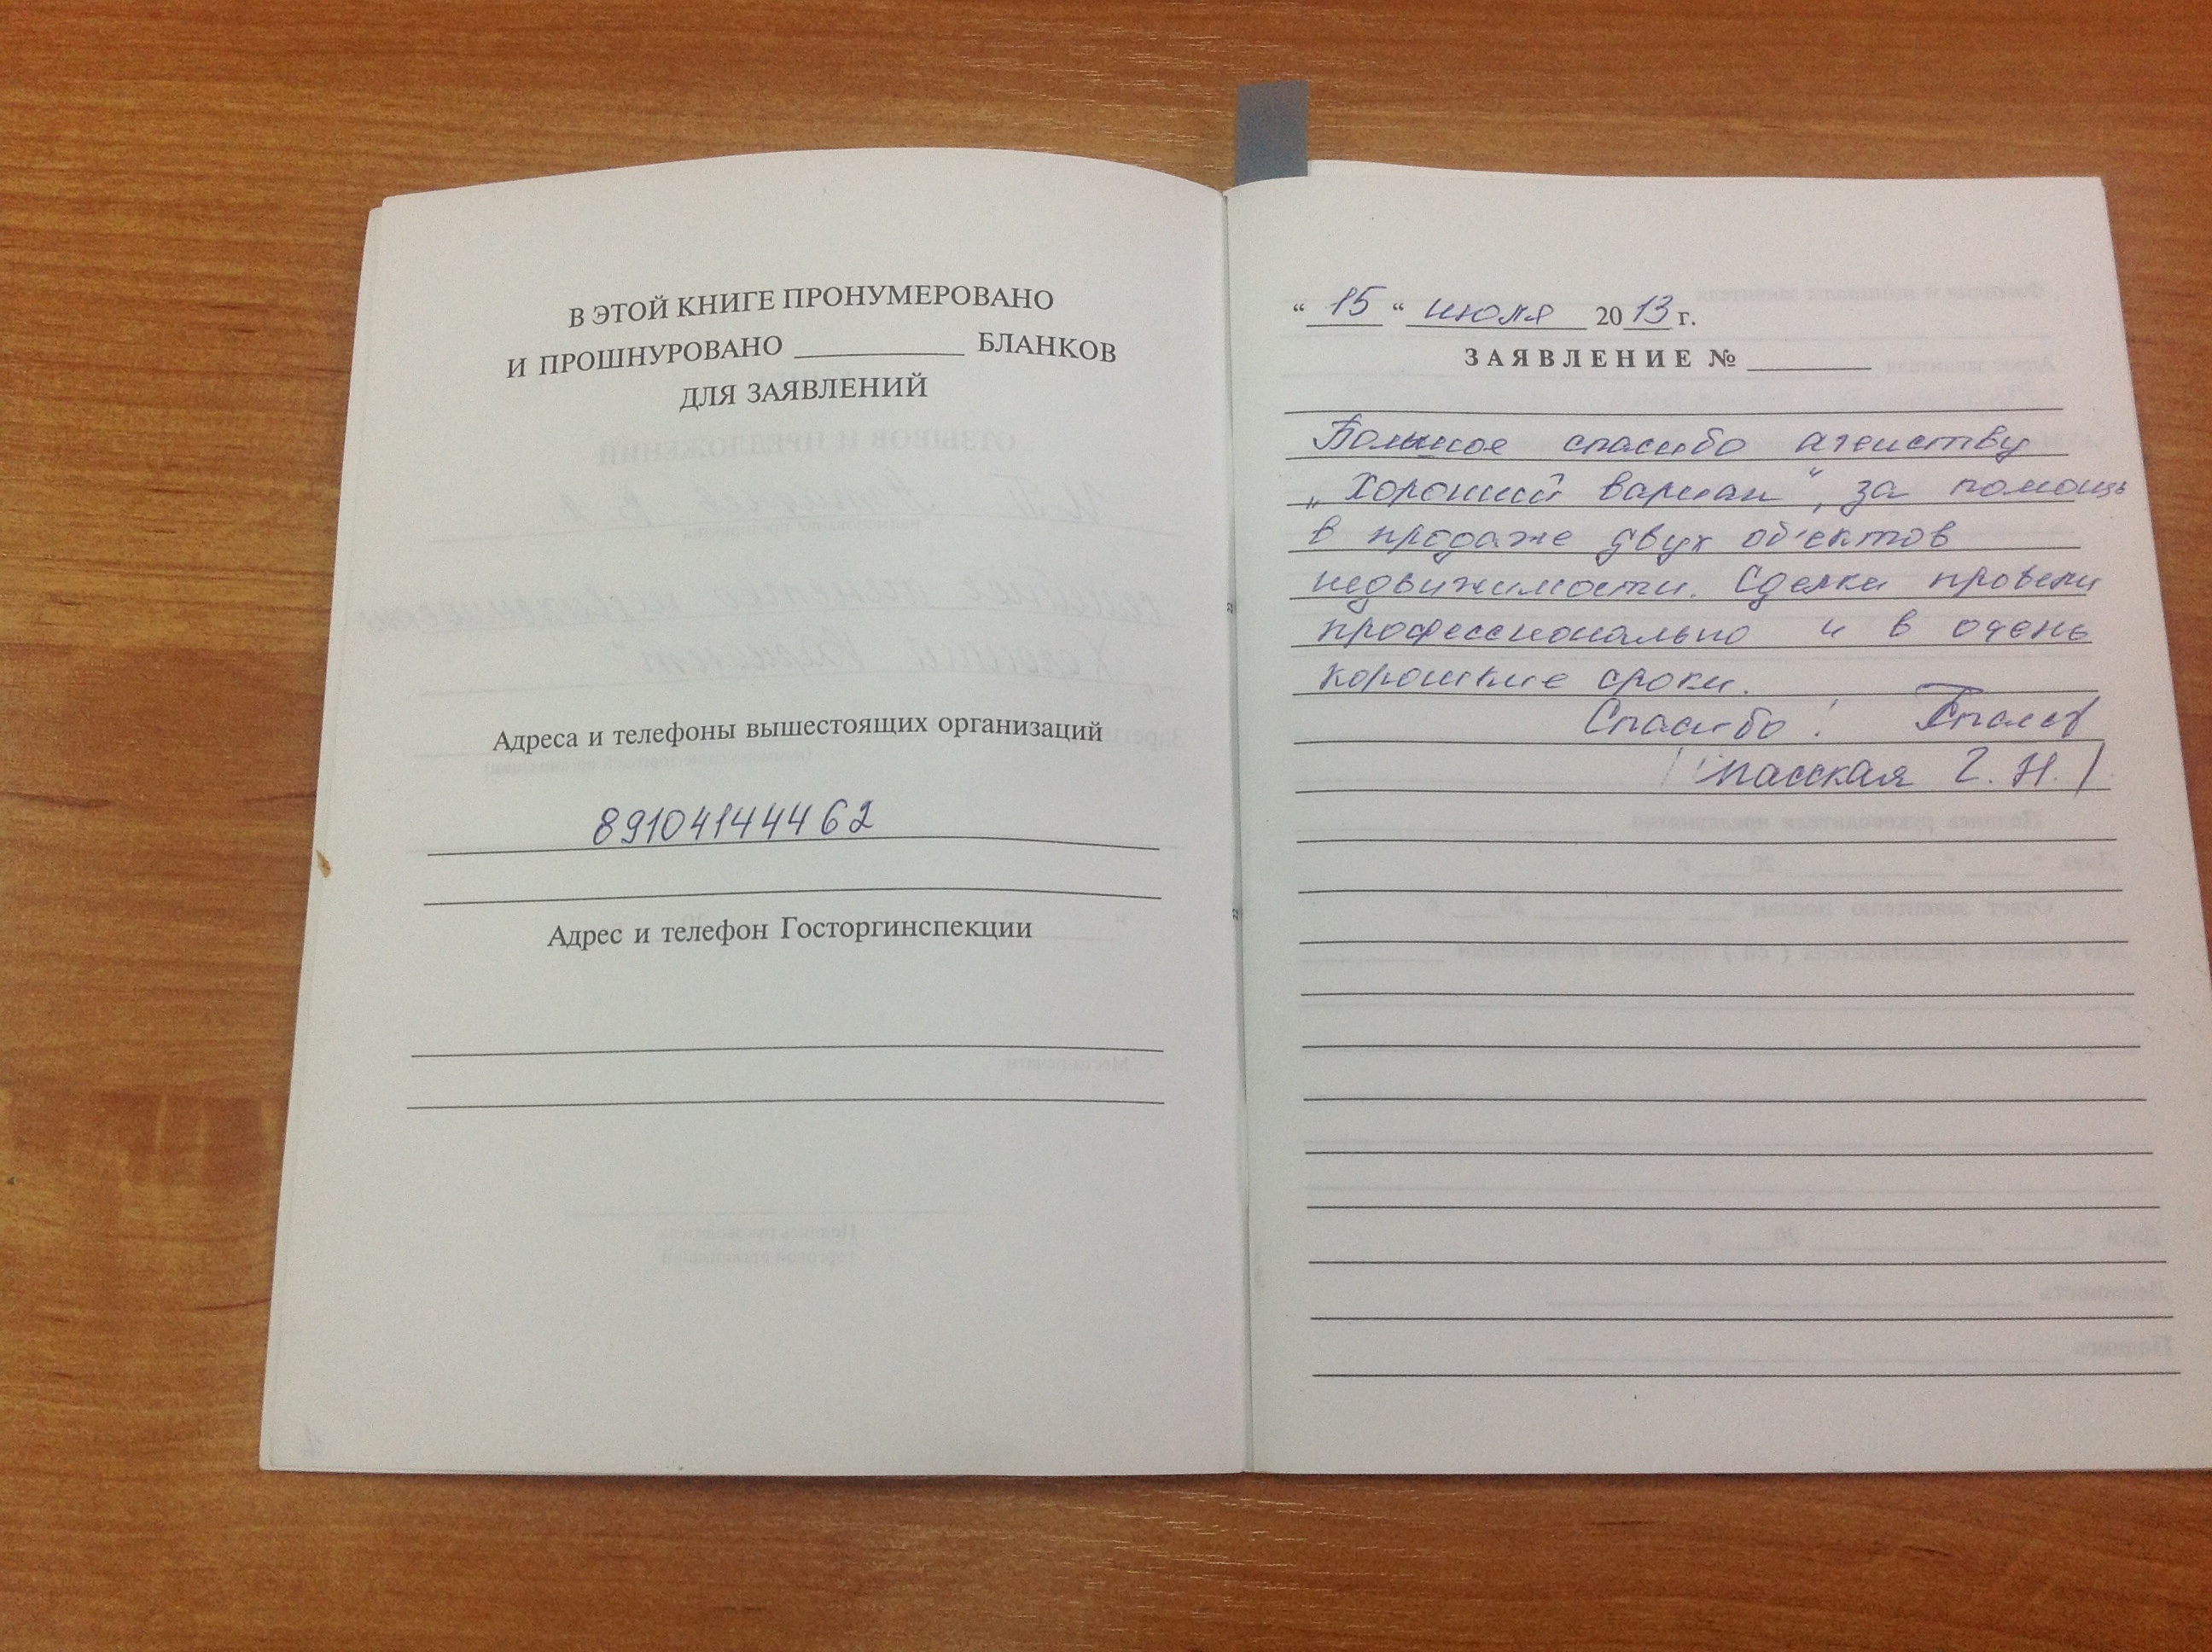 В ЭТОЙ КНИГЕ ПРОНУМЕРОВАНО
И ПРОШНУРОВАНО ____________ БЛАНКОВ
ДЛЯ ЗАЯВЛЕНИЙ
Адреса и телефоны вышестоящих организаций
89104144462
Адрес и телефон Госторгинспекции
“ 15 “ июля 2013 г.
ЗАЯВЛЕНИЕ № _________
Большое спасибо агенству
„Хороший вариан“, за помощь
в продаже двух об'ектов
недвижимости. Сделки провели
профессионально и в очень
хорошие сроки.
Спасибо!
/Спасская Г. Н./